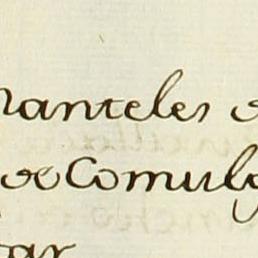 manteles d
de Comulg
tar